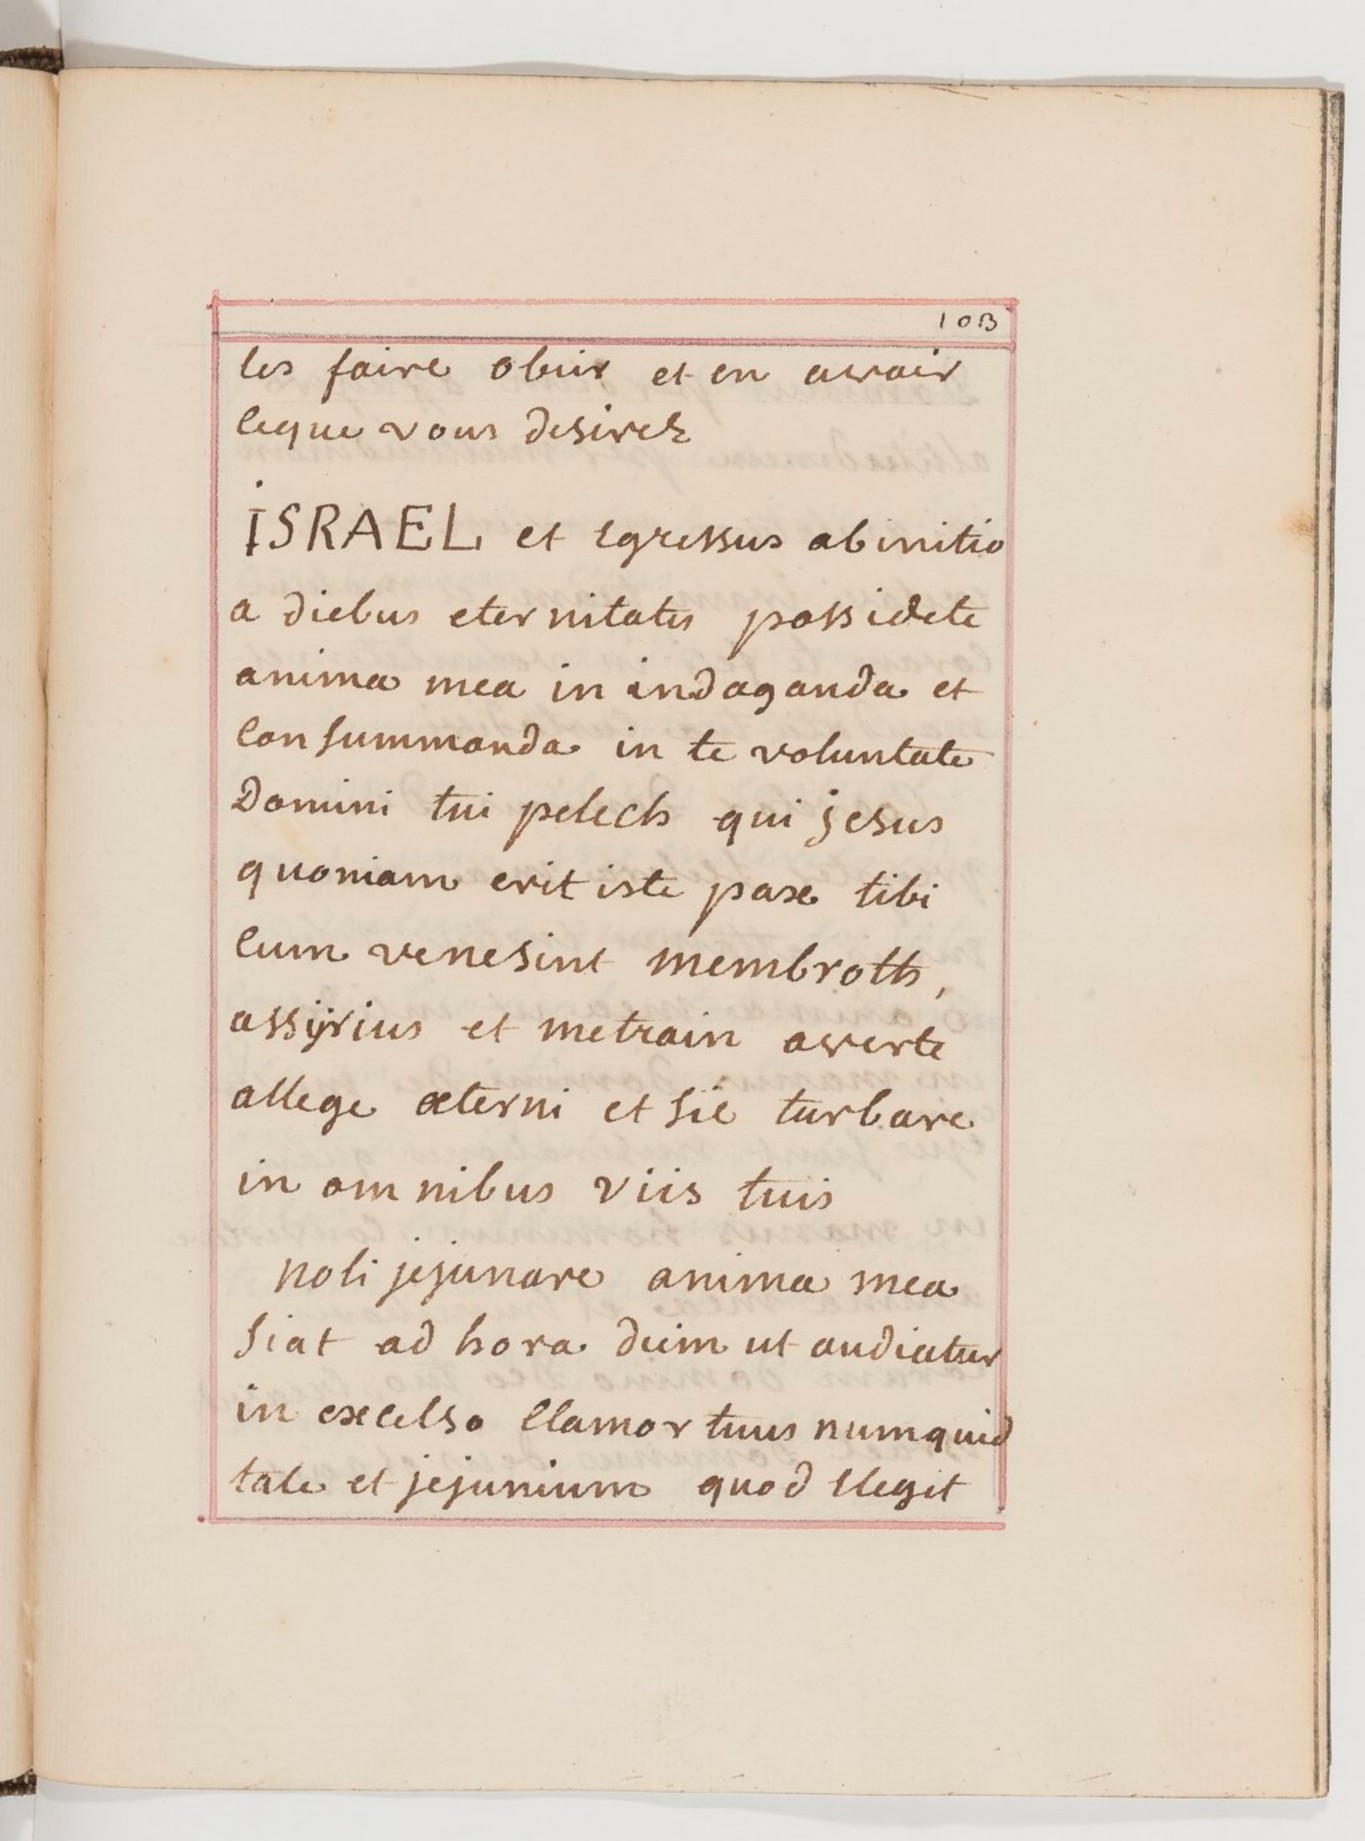 103
les faire obeir et en avoir
ceque vous desirez
ISRAEL et egressus ab initio
a diebus eternitatis possidete
anima mea in indaganda et
consummanda in te voluntate
Domini tui pelech qui jesus
quoniam erit iste pax tibi
cum venesint membroth,
assÿrius et metrain averte
allege æterni et sic turbare
in omnibus viis tuis
noli jejunare anima mea
siat ad hora duim ut audiatur
in excelso clamor tuus numquid
tale et jejunium quod elegit